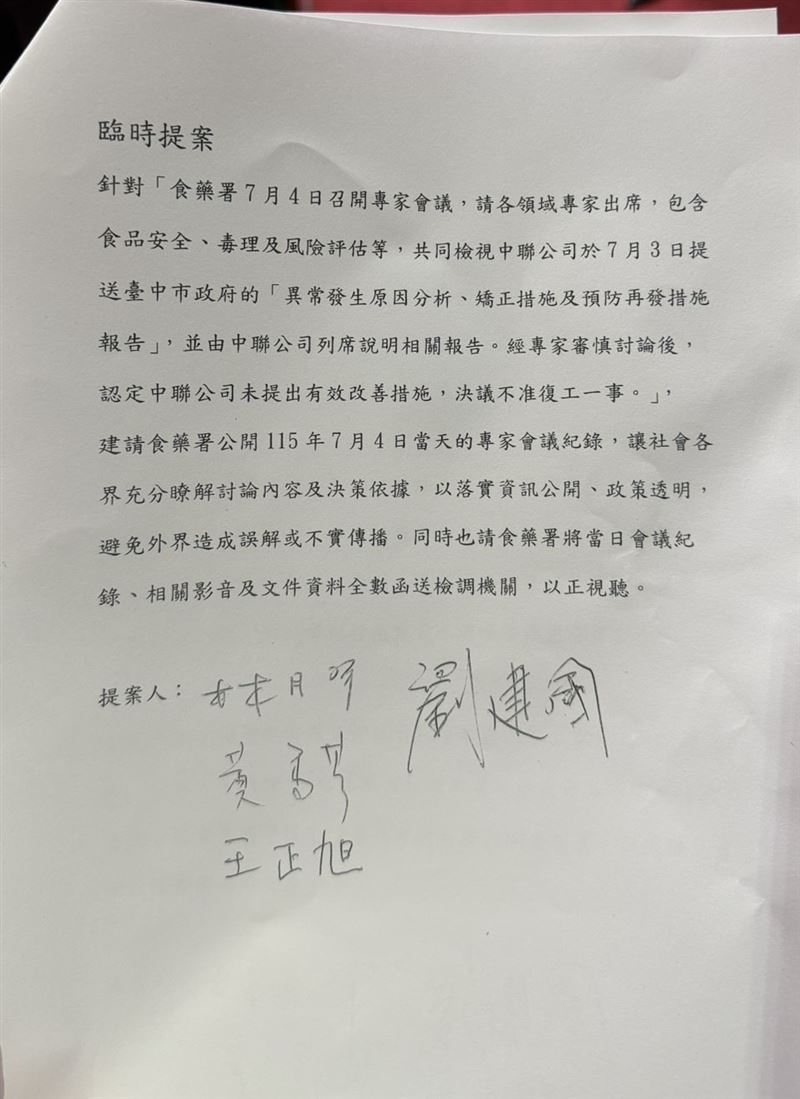 臨時提案
針對「食藥署7月4日召開專家會議，請各領域專家出席，包含
食品安全、毒理及風險評估等，共同檢視中聯公司於7月3日提
送臺中市政府的「異常發生原因分析、矯正措施及預防再發措施
報告」，並由中聯公司列席說明相關報告。經專家審慎討論後，
認定中聯公司未提出有效改善措施，決議不准復工一事。」，
建請食藥署公開115年7月4日當天的專家會議紀錄，讓社會各
界充分瞭解討論內容及決策依據，以落實資訊公開、政策透明，
避免外界造成誤解或不實傳播。同時也請食藥署將當日會議紀
錄、相關影音及文件資料全數函送檢調機關，以正視聽。
提案人： 林月琴 劉建國
黃秀芳
王正旭